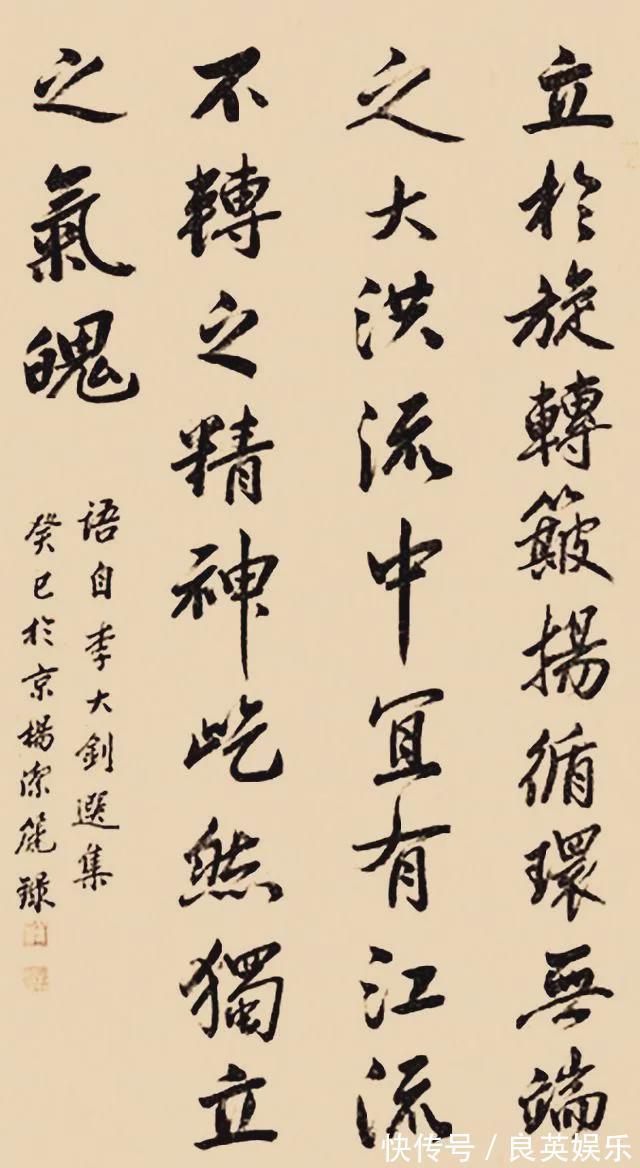 立於旋轉簸揚循環無端
之大洪流中宜有江流
不轉之精神屹然獨立
之氣魄
语自李大釗選集
癸巳於京楊潔篪録
快传号／良英娱乐